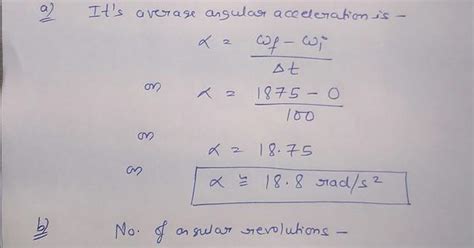 a) It's average angular acceleration is -
α = ωf - ωi / Δt
or α = 1875 - 0 / 100
or α = 18.75
or α ≅ 18.8 rad/s²
b) No. of angular revolutions -